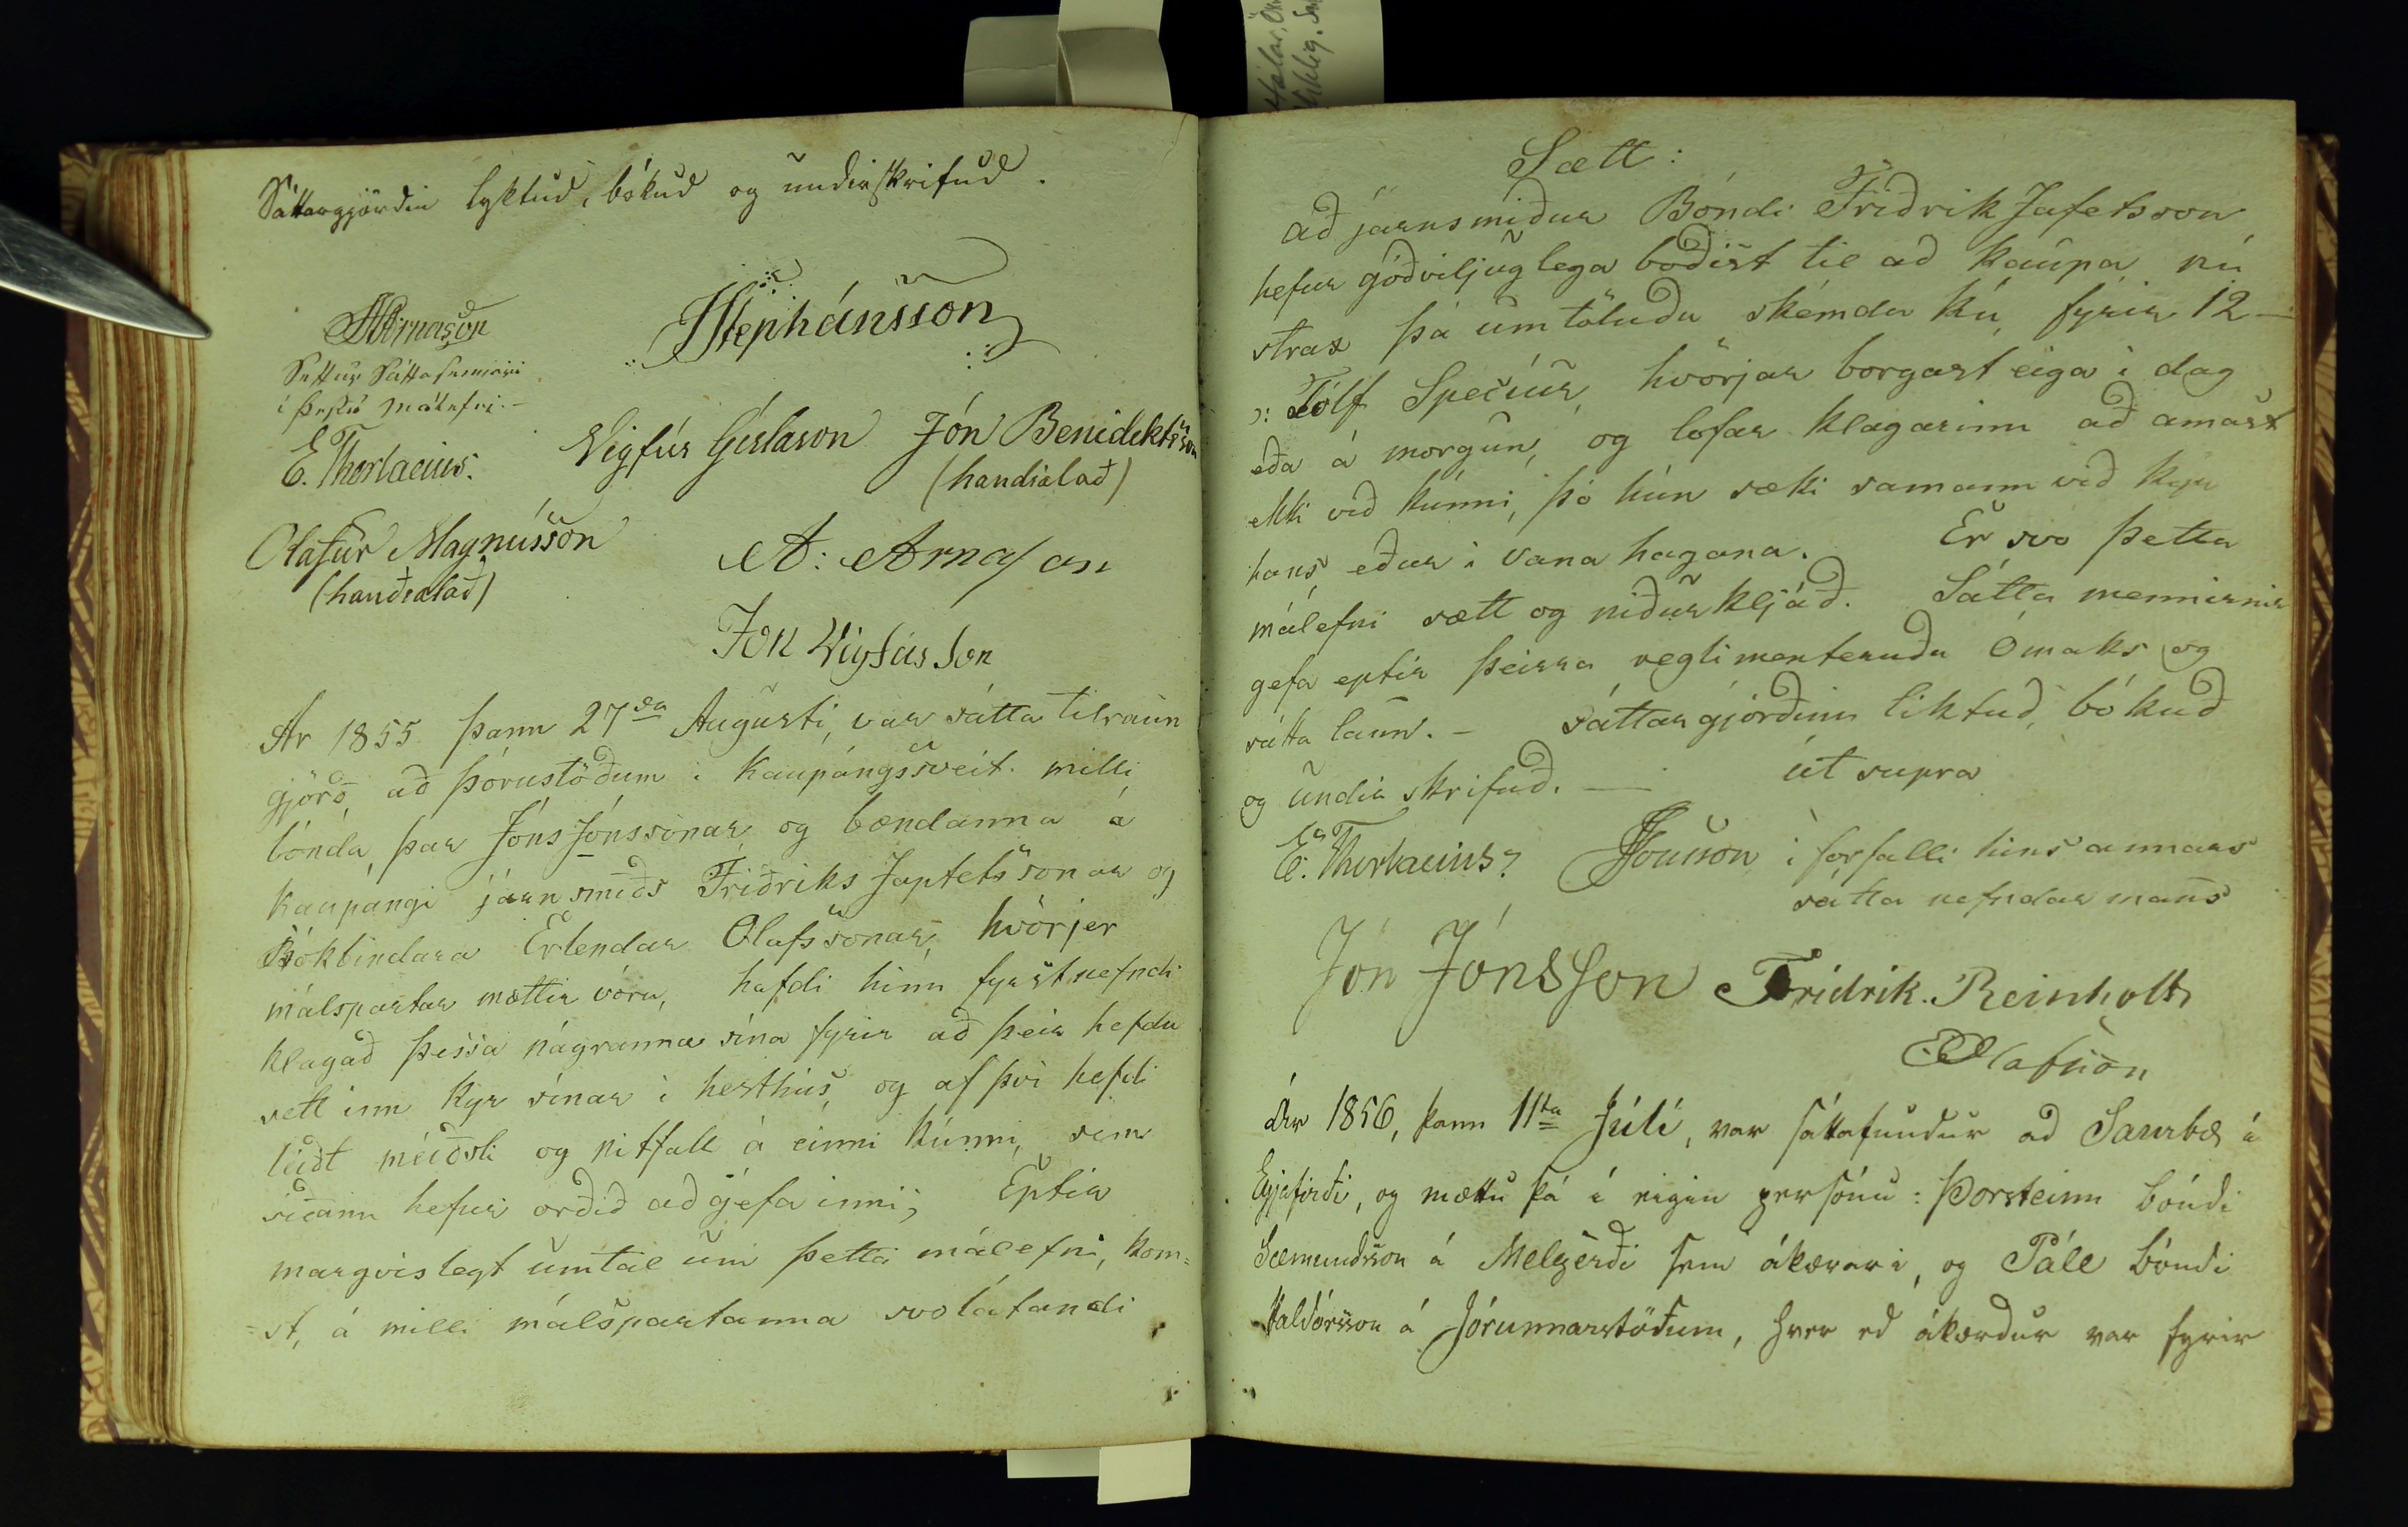 Sáttargjördin lyktud, bókud og undirskrifud.
Stephánsson
Árnason
Settur Sáttasemjari
í þessu málefni.-
E. Thorlacius.
Vigfús Gíslason Jón Benidiktsson
(handsalað)
Olafur Magnússon
(handsalað)
A: Arnason
Jón Vigfússon
Ár 1855 þann 27da Augusti, var sátta tilraun
gjörð, að Þórustöðum i Kaupángssveit. milli
bónda, þar Jóns Jónssonar, og bændanna á
Kaupángi járnsmiðs Friðriks Japtetssonar og
Bókbindara Erlendar Olafssonar, hvörjer
málspartar mættir vóru, hafdi hinn fyrstnefndi
klagað þessa nágranna sína fyrir að þeir hefdu
sett inn kýr sínar i hesthús, og af því hefdi
leiðt meiðsli og nitfall á einni kúnni, sem
siðann hefur orðið að gefa inni; Eptir
margvislegt umtal um þetta málefni, kom-
-st, á milli málspartanna svolátandi
Sætt:
að járnsmiður Bóndi Friðrik Jafetsson
hefur góðviljuglega boðist til að kaupa nú
strax þá umtöluðu skémdu kú, fyrir 12 —
ɔ: Tólf Specíur, hvörjar borgast eiga i dag
eða á morgun, og lofar klagarinn að amast
ekki við kúnni, þó hún sæki samann við kýr
hans eður i vana hagana. Er svo þetta
málefni sætt og niðurkljáð. Sátta mennirnir
gefa eptir þeirra reglimenteruðu Ómaks og
sátta laun. - sáttargjörðinn liktuð, bókuð
og undir skrifuð. — út supra
E. Thorlacius. JJonsson i forfalli hins annars
sátta nefndar manns
Jón Jónsson Fridrik. Reinholt
E Olafsson
Ár 1856, þann 11ta Júlí, var sáttafundur að Saurbæ í
Eyjafirði, og mættu þá í eigin persónu: Þorsteinn bóndi
Sæmundsson á Melgerði sem ákærari, og Páll bóndi
Halldórsson á Jórunnarstöðum, hver eð ákærdur var fyrir